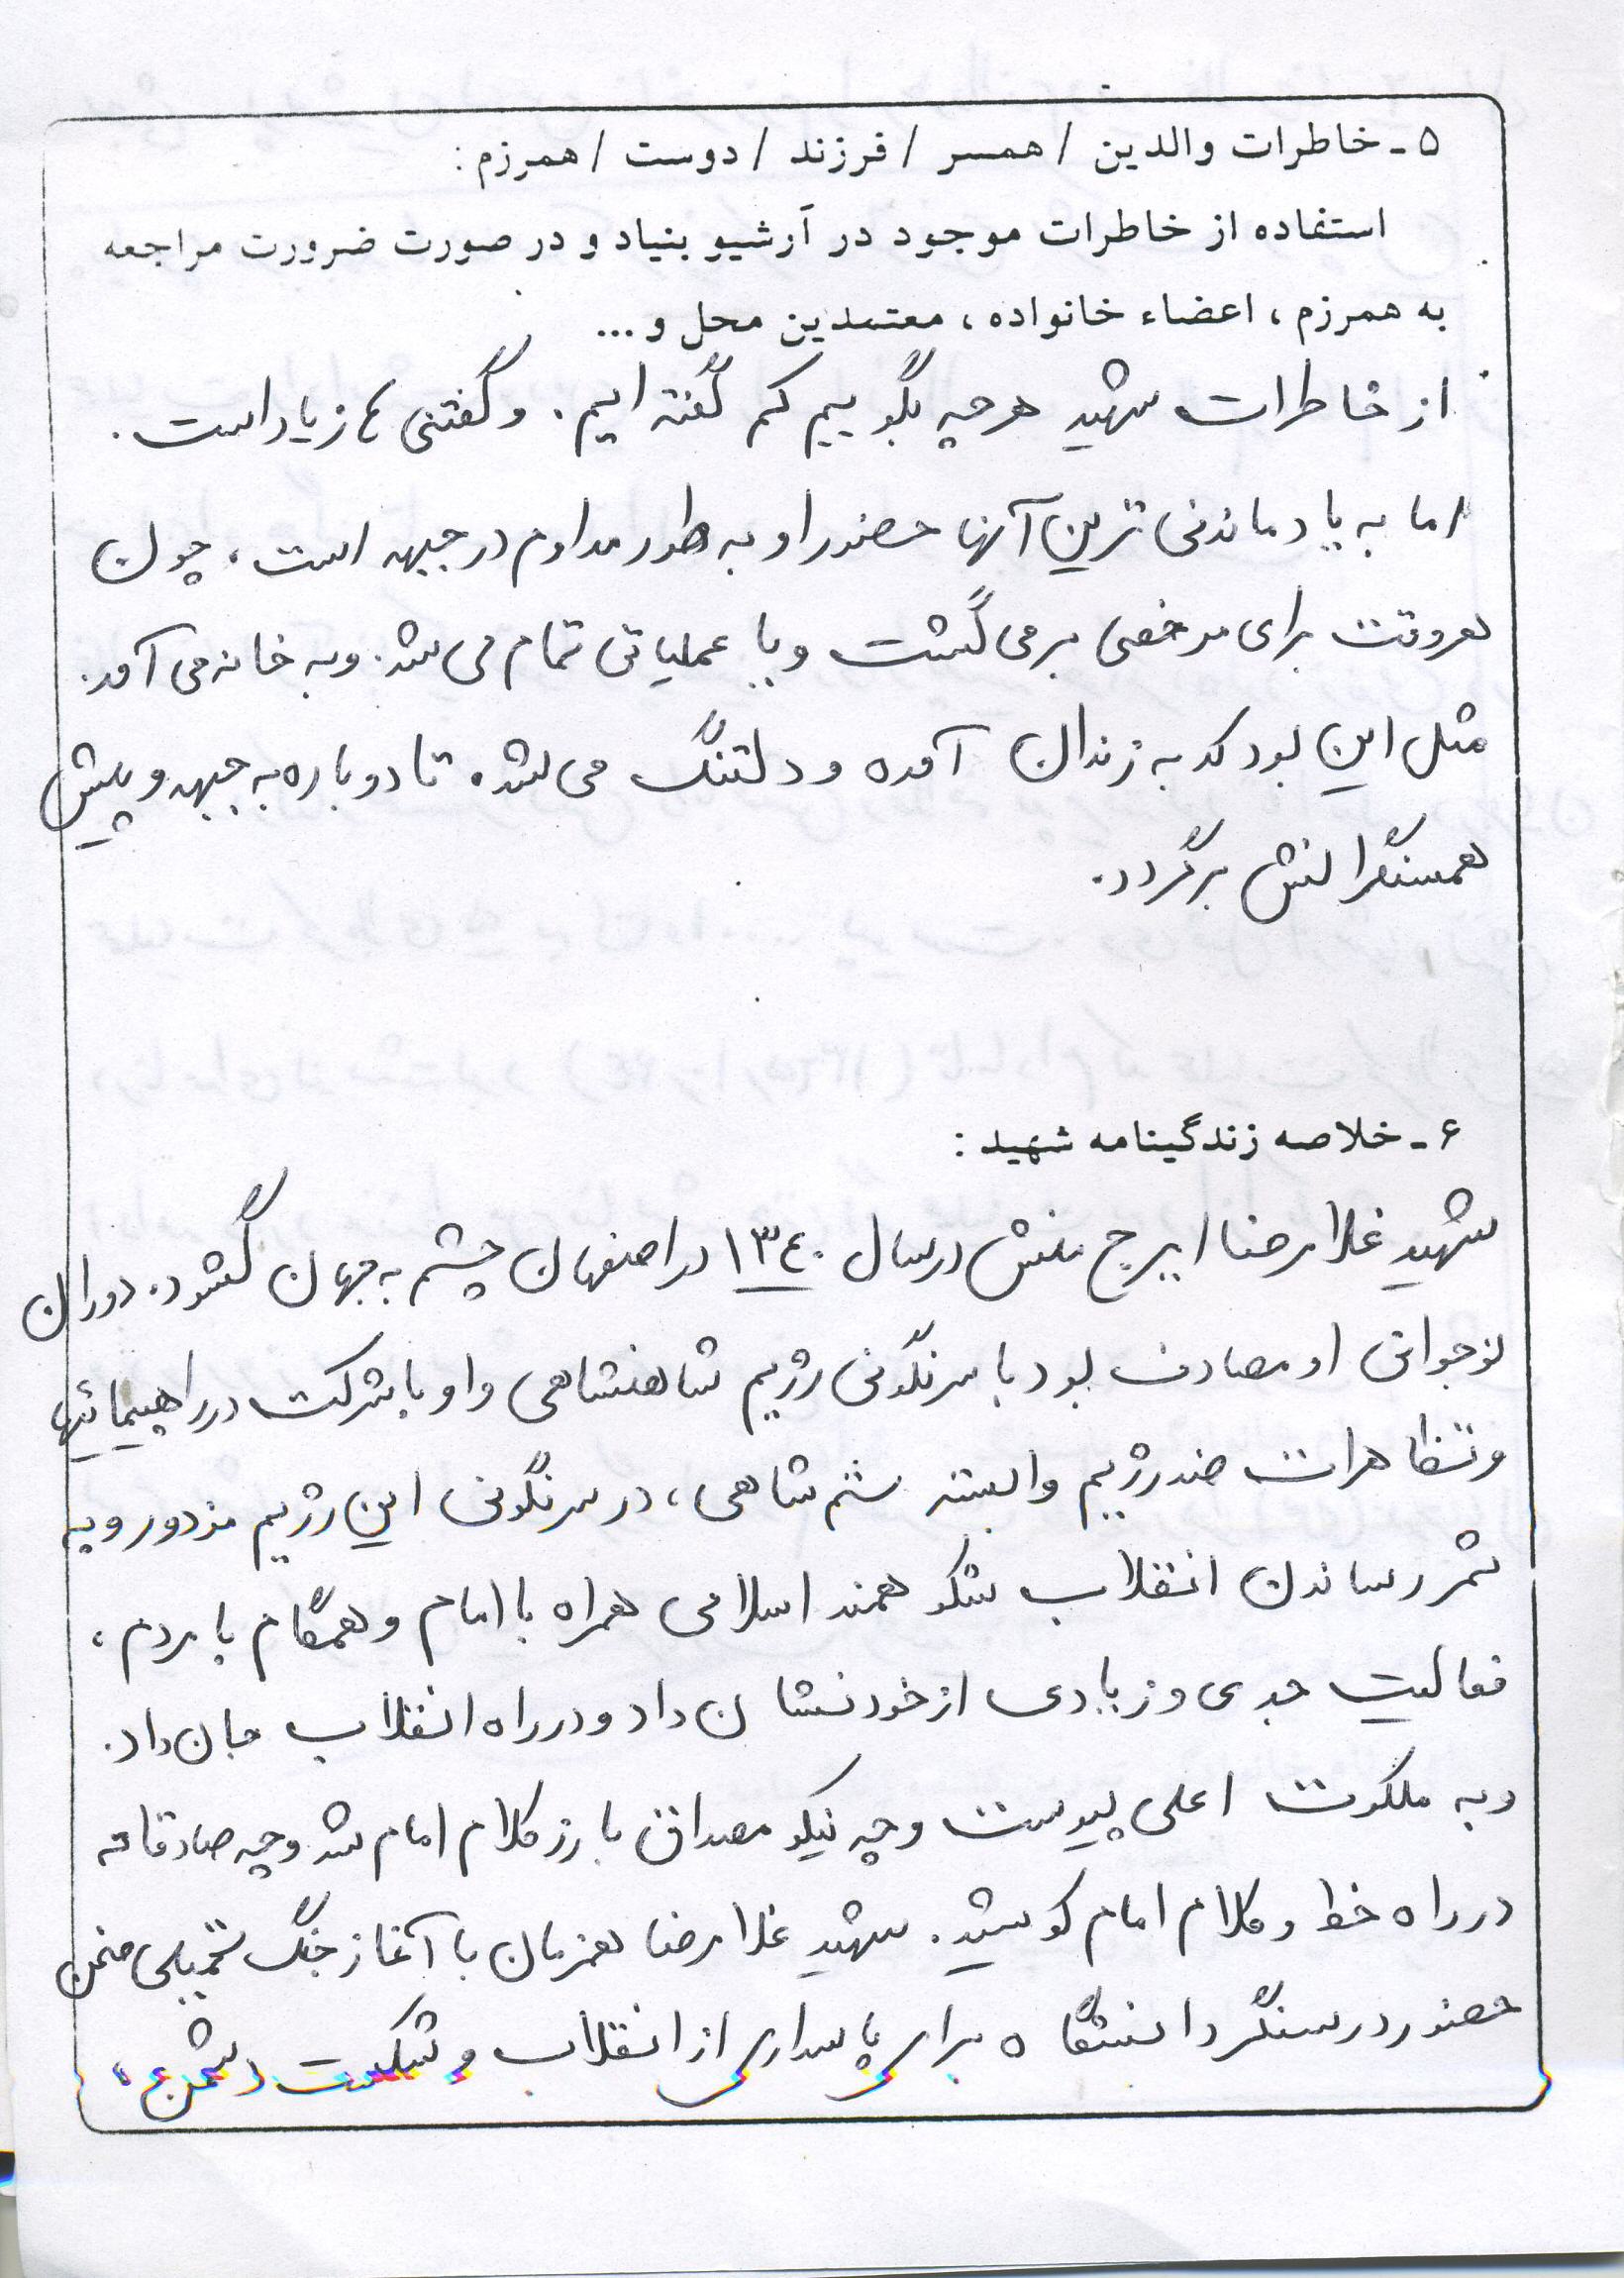 ۵ـ خاطرات والدین / همسر / فرزند / دوست / همرزم :
استفاده از خاطرات موجود در آرشیو بنیاد و در صورت ضرورت مراجعه
به همرزم ، اعضاء خانواده ، معتمدین محل و ...
از خاطرات شهید هرچه بگوییم کم گفته ایم . و گفتنی ها زیاد است .
اما به یاد ماندنی ترین آنها حضور او به طور مداوم در جبهه است ، چون
هروقت برای مرخصی برمی گشت و یا عملیاتی تمام می شد . و به خانه می آمد .
مثل این بود که به زندان آمده و دلتنگ می شد . تا دوباره به جبهه و پیش
همسنگرانش برگردد .
۶ـ خلاصه زندگینامه شهید :
شهید غلامرضا ایرج منش درسال ۱۳۴۰ در اصفهان چشم به جهان گشود . دوران
نوجوانی او مصادف بود با سرنگونی رژیم شاهنشاهی و او با شرکت در راهپیمائیها
و تظاهرات ضد رژیم وابسته ستم شاهی ، در سرنگونی این رژیم مزدور و به
ثمر رساندن انقلاب شکوهمند اسلامی همراه با امام و همگام با مردم ،
فعالیت جدی و زیادی از خود نشان داد و در راه انقلاب جان داد .
و به ملکوت اعلی پیوست و چه نیکو مصداق بارز کلام امام شد و چه صادقانه
در راه خط و کلام امام کوشید . شهید غلامرضا همزمان با آغاز جنگ تحمیلی ضمن
حضور در سنگر دانشگاه برای پاسداری از انقلاب و شکست دشمن ،